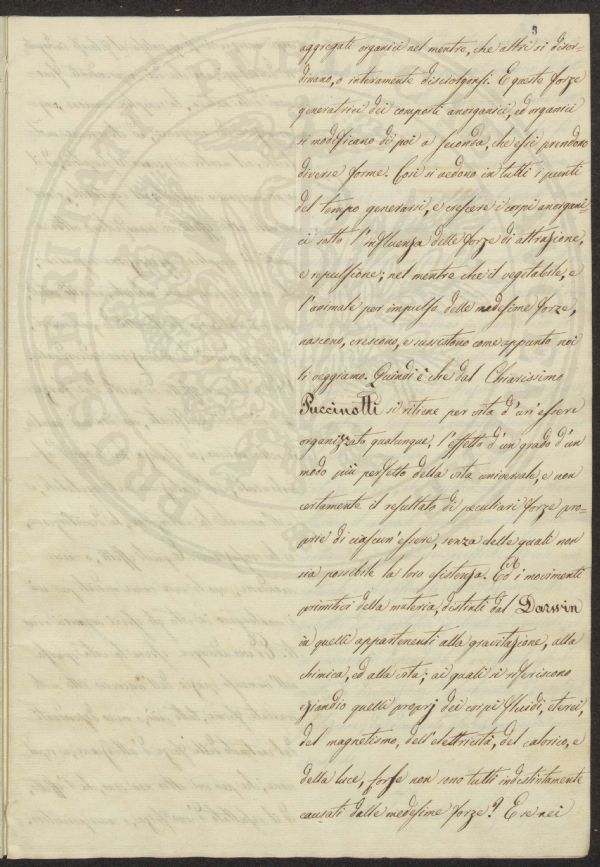 3
aggregati organici nel mentre, che altri si disor-
dinano, o interamente disciolgonsi. E queste forze
generatrici dei composti anorganici, ed organici
si modificano di poi a seconda, che essi prendono
diverse forme. Così si vedono in tutti i punti
del tempo generarsi, e crescere i corpi anorgani-
ci sotto l'influenza delle forze di attrazione,
e repulsione; nel mentre che il vegetabile, e
l'animale per impulso delle medesime forze,
nascono, crescono, e sussistono come appunto noi
li veggiamo. Quindi è che dal Chiarissimo
Puccinotti si ritiene per vita d'un'essere
organizzato qualunque, l'effetto d'un grado d'un
modo più perfetto della vita universale, e non
certamente il resultato di peculiari forze pro-
prie di ciascun'essere, senza delle quali non
sia possibile la loro esistenza. Ed i movimenti
primitivi della materia, distinti dal Darwin
in quelli appartenenti alla gravitazione, alla
chimica, ed alla vita; ai quali si riferiscono
eziandio quelli proprj dei corpi fluidi, eterei,
del magnetismo, dell'elettricità, del calorico, e
della luce, forse non sono tutti indistintamente
causati dalle medesime forze? E se nei
PROSPERI ATI PVBLI